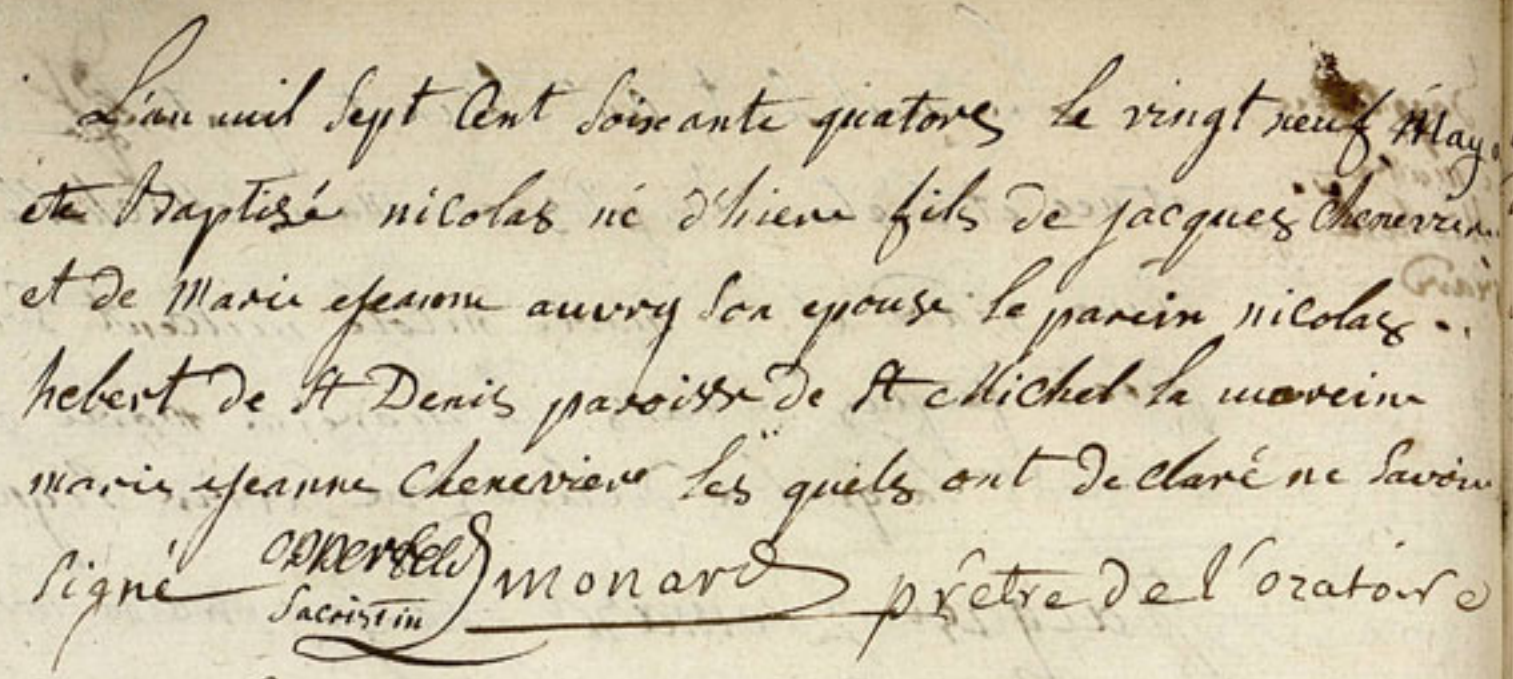 L'an mil Sept Cent Soixante quatorz le vingt neuf May a
ete Baptisé nicolas né d'hiere fils de jacques chenevier
et de Marie Jeanne auvry Son epouse le parein nicolas
hebert de St Denis paroisse de St Michel la mareine
marie Jeanne cheneviere les quels ont declaré ne Savoir
Signé Sacristin monard prêtre de l'oratoire